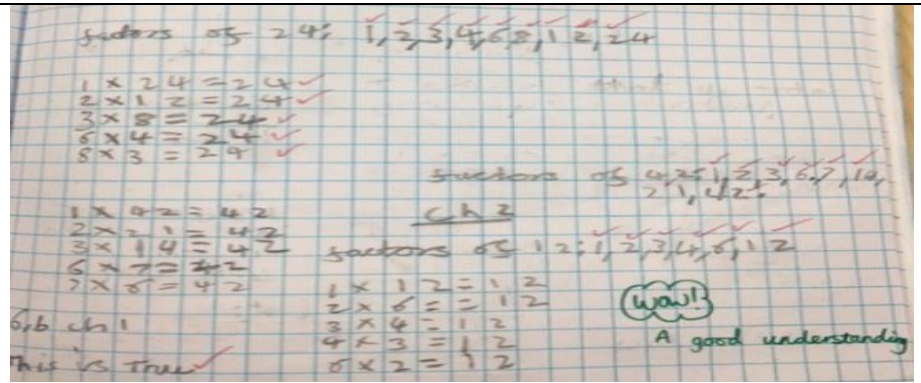 factors of 24: 1,2,3,4,6,8,12,24
1 x 24 = 24
2 x 12 = 24
3 x 8 = 24
6 x 4 = 24
8 x 3 = 24
factors of 42: 1,2,3,6,7,14,
21,42.
1 x 42 = 42
2 x 21 = 42
3 x 14 = 42
6 x 7 = 42
7 x 6 = 42
6,b ch1
This is True
ch2
factors of 12: 1,2,3,4,6,12
1 x 12 = 12
2 x 6 = = 12
3 x 4 = 12
4 x 3 = 12
6 x 2 = 12
Wow!
A good understanding